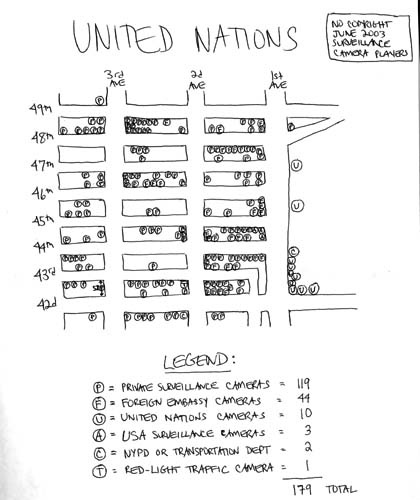 UNITED NATIONS
NO COPYRIGHT
JUNE 2003
SURVEILLANCE
CAMERA PLAYERS
3rd AVE
2d AVE
1st AVE
49th
48th
47th
46th
45th
44th
43rd
42d
LEGEND:
P = PRIVATE SURVEILLANCE CAMERAS = 119
F = FOREIGN EMBASSY CAMERAS = 44
U = UNITED NATIONS CAMERAS = 10
A = USA SURVEILLANCE CAMERAS = 3
C = NYPD OR TRANSPORTATION DEPT = 2
T = RED-LIGHT TRAFFIC CAMERA = 1
179 TOTAL